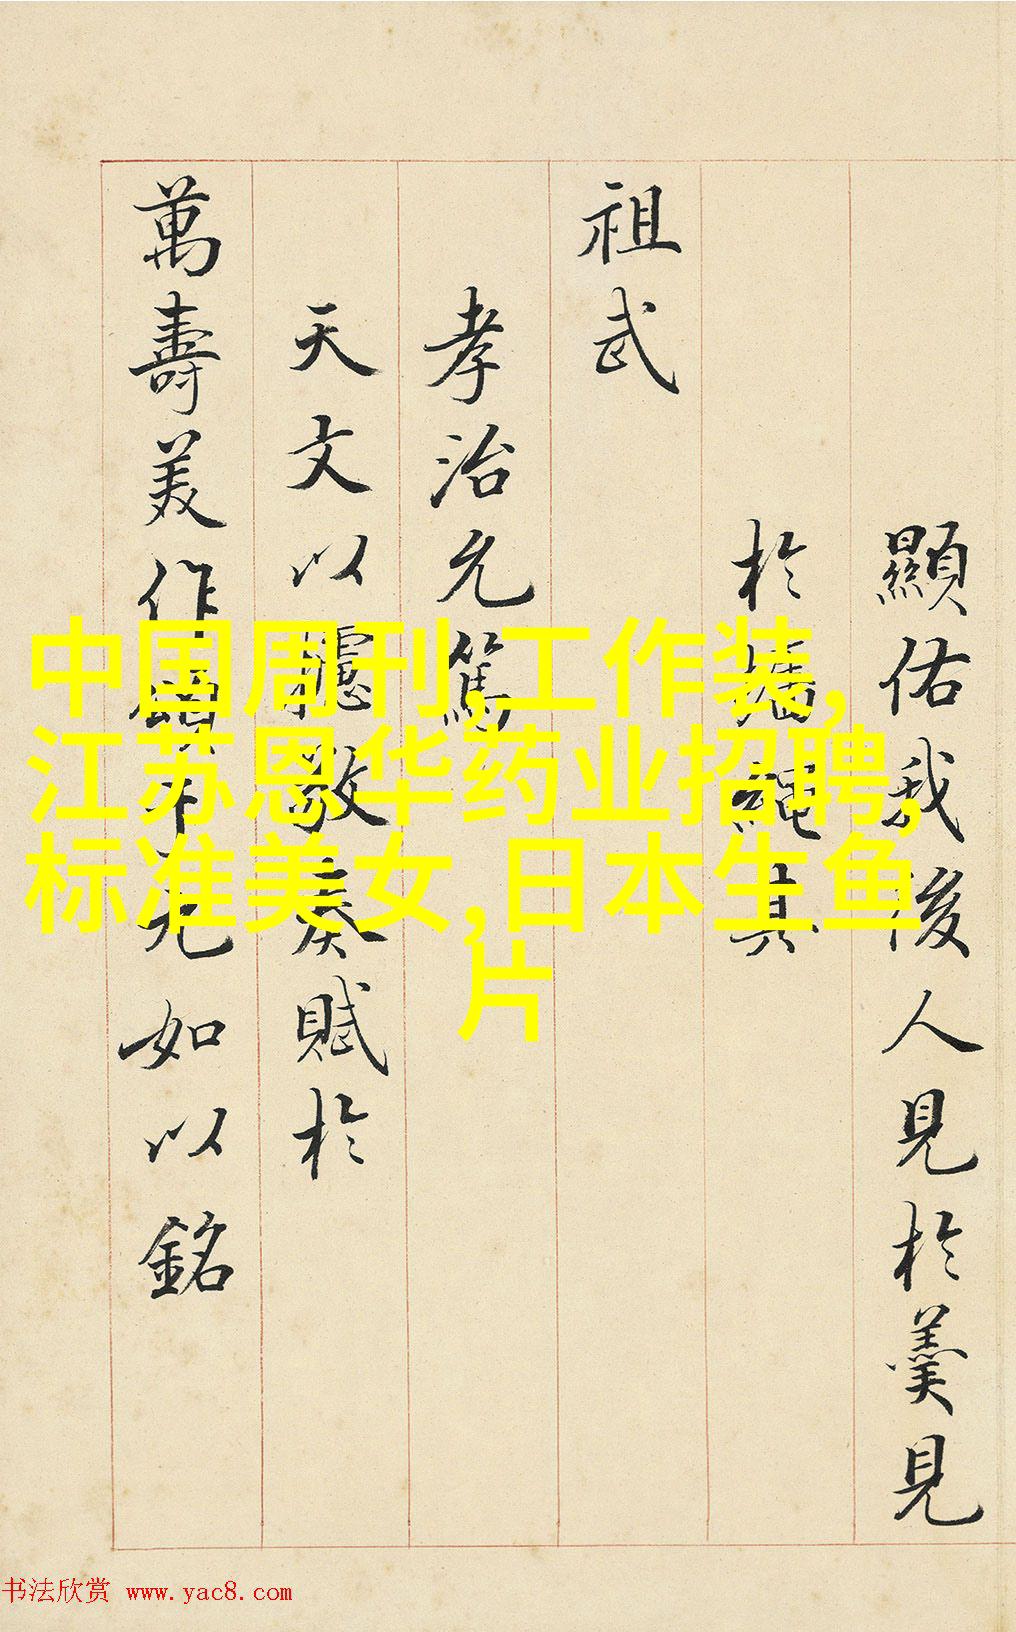 顯佑我後人見於羹見
於牆繩其
祖武
孝治允篤
天文以奏賦於
萬壽美作如以銘
中国周刊,工作装,
江苏恩华药业招聘,
标准美女,日本生鱼
片
书法欣赏 www.yac8.com